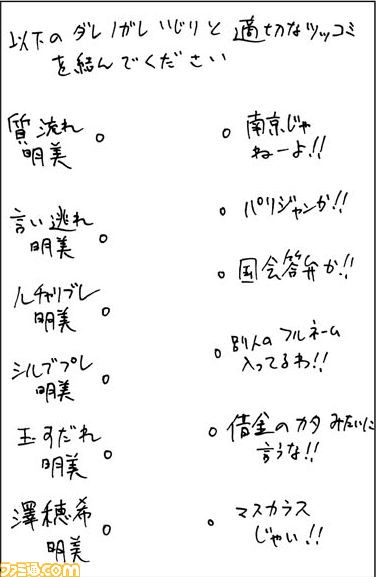 以下のダレノガレいじりと適切なツッコミ
を結んでください
質流れ
明美
言い逃れ
明美
ルチャリブレ
明美
シルブプレ
明美
玉すだれ
明美
澤穂希
明美
南京じゃ
ねーよ!!
パリジャンか!!
国会答弁か!!
別人のフルネーム
入ってるわ!!
借金のカタみたいに
言うな!!
マスカラス
じゃい!!
ファミ通.com